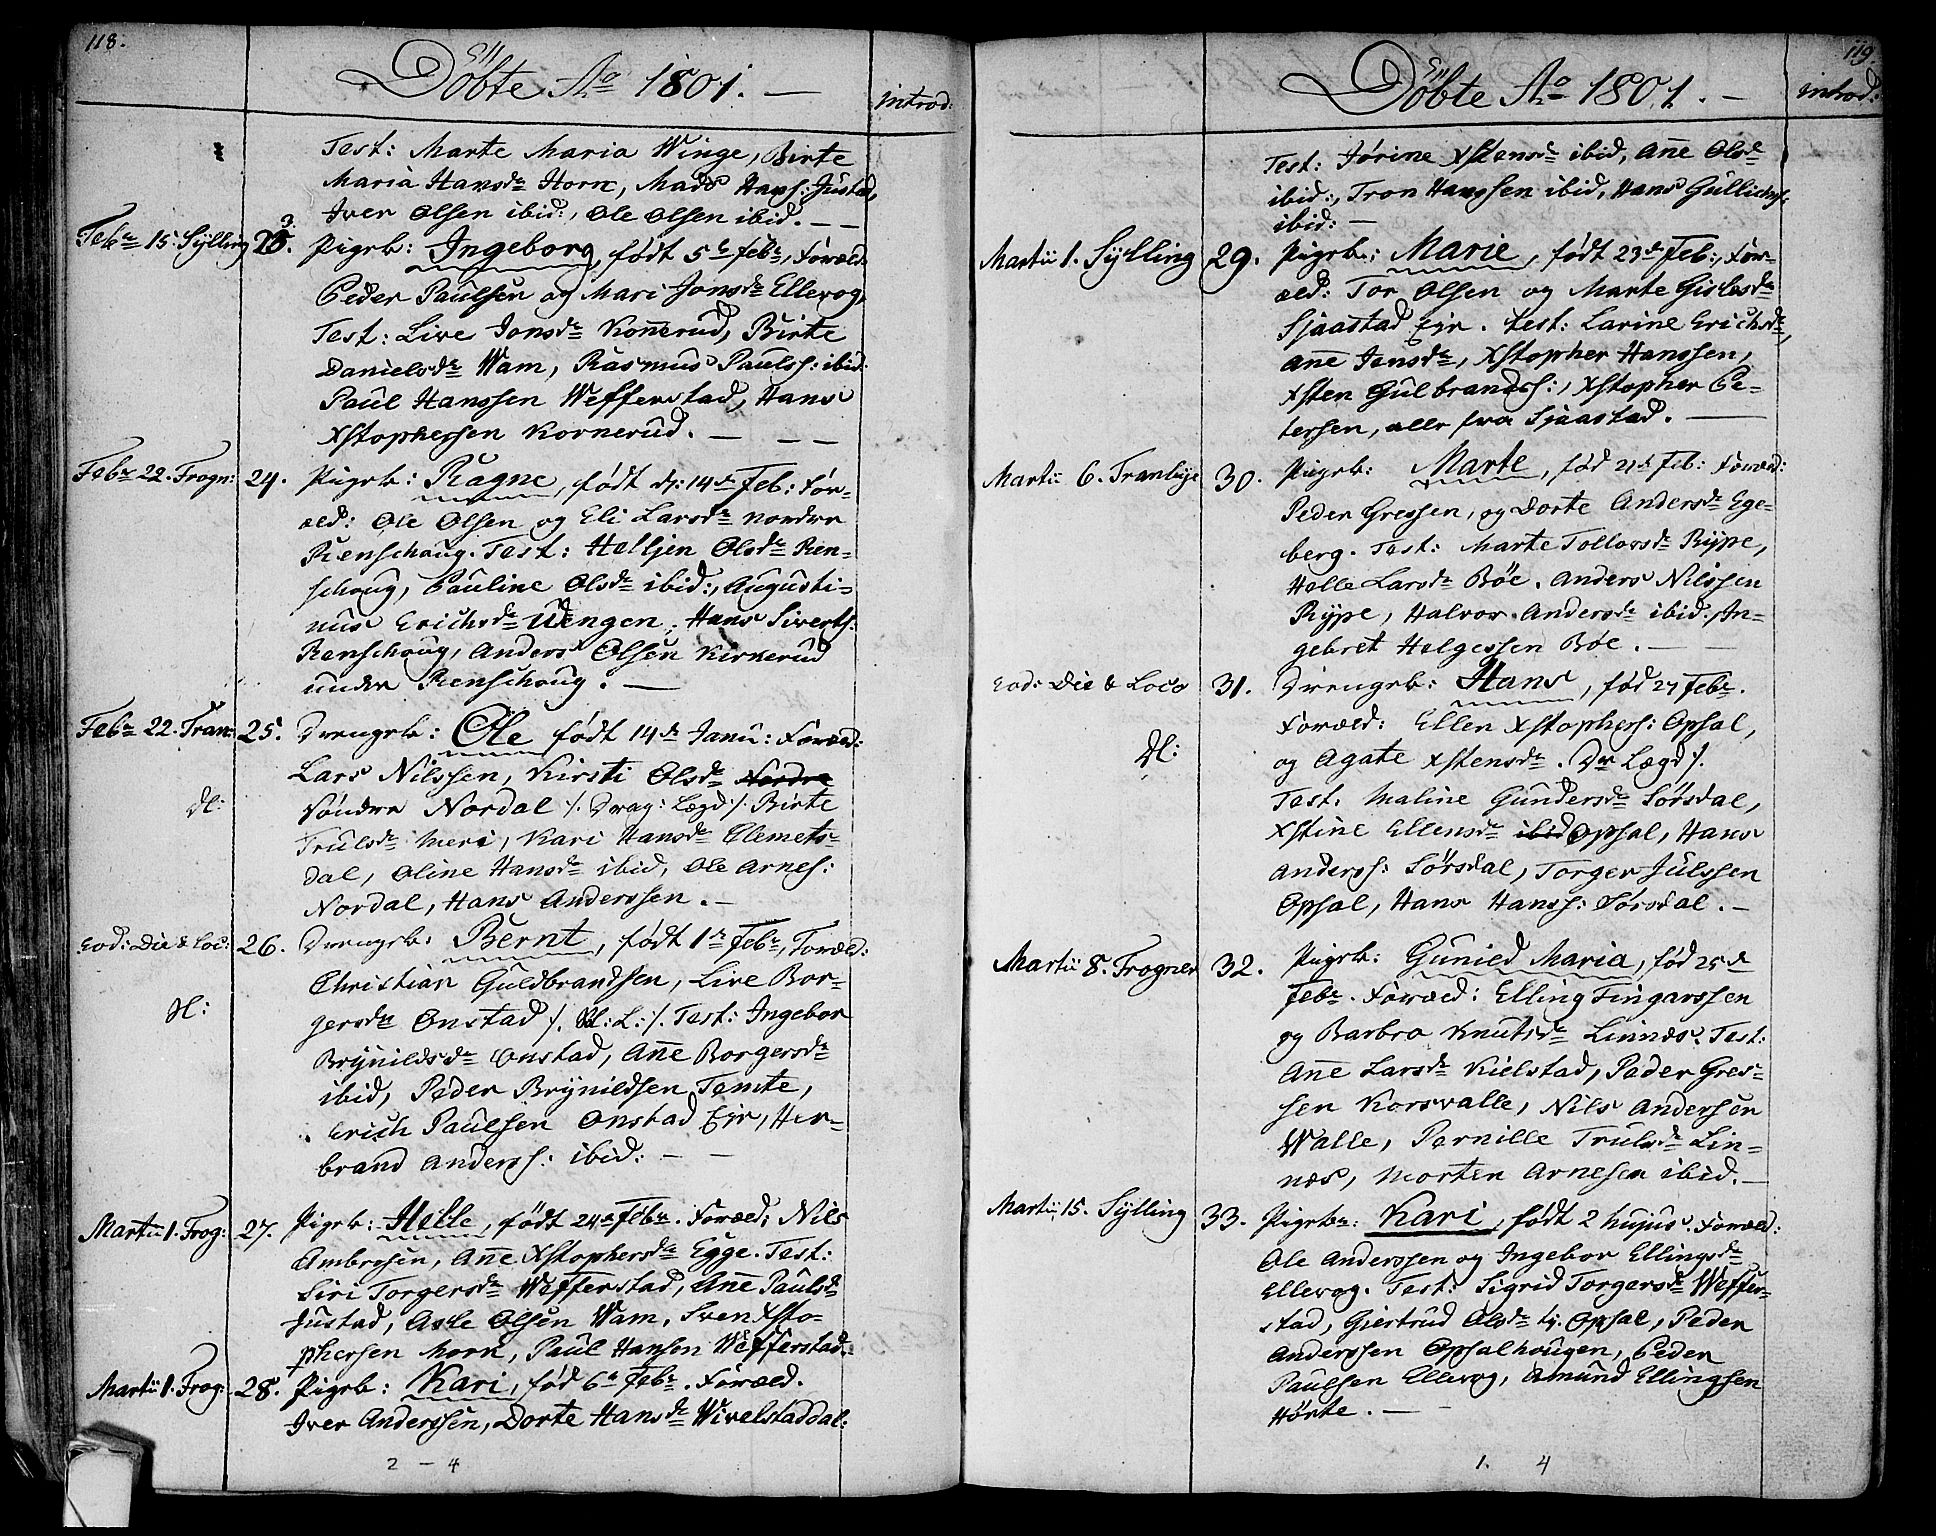 118.
Döbte Ao 1801. —
introd:
Test: Marte Maria Winge, Birte
Maria Hansdr Horn, Mads Hanss: Justad,
Iver Olsen ibid:, Ole Olsen ibid. — —
Febr 15. Sylling 23. Pigeb: Ingeborg, født 5te Febr, Foræld:
Peder Paulsen og Mari Jonsdr Ellevog,
Test: Live Jonsdr Konnerud, Birte
Danielsdr Wam, Rasmus Paulss: ibid:
Paul Hanssen Wefferstad, Hans
Xstophersen Kornerud. — — —
Febr 22. Frogn: 24. Pigeb: Ragne, født d: 14de Feb: For-
æld: Ole Olsen og Eli Larsdr nordre
Renschoug. Test: Helljen Olsdr Ren-
schoug, Pauline Olsdr ibid:, Augusti-
nus Erichsdr Uengen, Hans Siverts:
Renschoug, Anders Olsen Kirkerud
under Renschoug. —
Febr 22. Tran: 25. Drengeb: Ole født 14de Janu: Foræld:
Lars Nilssen, Kirsti Olsdr Nordre
Söndre Nordal /. Drag: Lægd /. Birte
Trulsdr Meri, Kari Hansdr Clemets-
dal, Oline Hansdr ibid, Ole Arnes:
Nordal, Hans Anderssen. —
Eod: Die & Loc: 26. Drengeb: Bernt, født 1de Febr, Foræld:
Christian Guldbrandsen, Live Bor-
gersdr Onstad /. Sl: L: /. Test: Ingebor
Brynildsdr Onstad, Anne Borgersdr
ibid, Peder Brynildsen Temte,
Erich Paulsen Onstad Eyr, Her-
brand Anderss: ibid: — —
Martii 1. Frog: 27. Pigeb: Helle, født 24de Febr. Foræld: Nils
Ambrosen, Anne Xstophersdr Egge. Test:
Siri Torgersdr Wefferstad, Anne Paulsdr
Justad, Asle Olsen Wam, Sven Xsto-
phersen Morn, Paul Hansen Wefferstad.
Martii 1. Frog: 28. Pigeb: Kari, fød 6te Febr. Foræld.
Iver Anderssen, Dorte Hansdr Wivelstaddal:
2 — 4
119.
Döbte Ao 1801. —
introd:
Test: Jørine Xstensdr ibid, Anne Olsdr
ibid:, Tron Hanssen ibid, Hans Gullichs:
ibid: —
Martii 1. Sylling 29. Pigeb: Marie, født 23de Feb:, For-
æld: Tor Olsen og Marte Gislesdr
Sjaastad Eyr. Test: Larine Erichsdr,
Anne Jensdr, Xstopher Hanssen,
Xsten Gulbrandss:, Xstopher Pe-
tersen, alle fra Sjaastad. —
Martii 6. Tranbye 30. Pigeb: Marte, fød 21de Feb: Foræld:
Peder Gressen, og Dorte Andersdr Ege-
berg. Test: Marte Tollovsdr Rype,
Helle Larsdr Böe. Anders Nilssen
Rype, Halvor Andersdr ibid:, In-
gebret Helgessen Böe. — —
Eod: Die & Loco 31. Drengeb: Hans, fød 27 Febr.
Foræld: Ellen Xstophers: Opsal,
og Agate Xstensdr. Dr Lægd /.
Test: Maline Gundersdr Sørsdal,
Xstine Ellensdr ibid Opsal, Hans
Anderss: Sørsdal, Torger Julssen
Opsal, Hans Hanss: Sørsdal. —
Martii 8. Frogner 32. Pigeb: Gunied Maria, fød 25de
Febr. Foræld: Elling Fingarssen
og Barbro Knutsdr Linnæs. Test:
Anne Larsdr Kielstad, Peder Gres-
sen Korsvalle, Nils Andersen
Walle, Pernille Trulsdr Lin-
næs, Morten Arnesen ibid. —
Martii 15. Sylling 33. Pigebn: Kari, født 2 hujus. Foræld:
Ole Anderssen og Ingebor Ellingsdr
Ellevog. Test: Sigrid Torgersdr Weffer-
stad, Giertrud Olsdr ty Opsal, Peder
Anderssen Opsalhougen, Peder
Paulsen Ellevog, Amund Ellingsen
Hörte. — —
1. 4